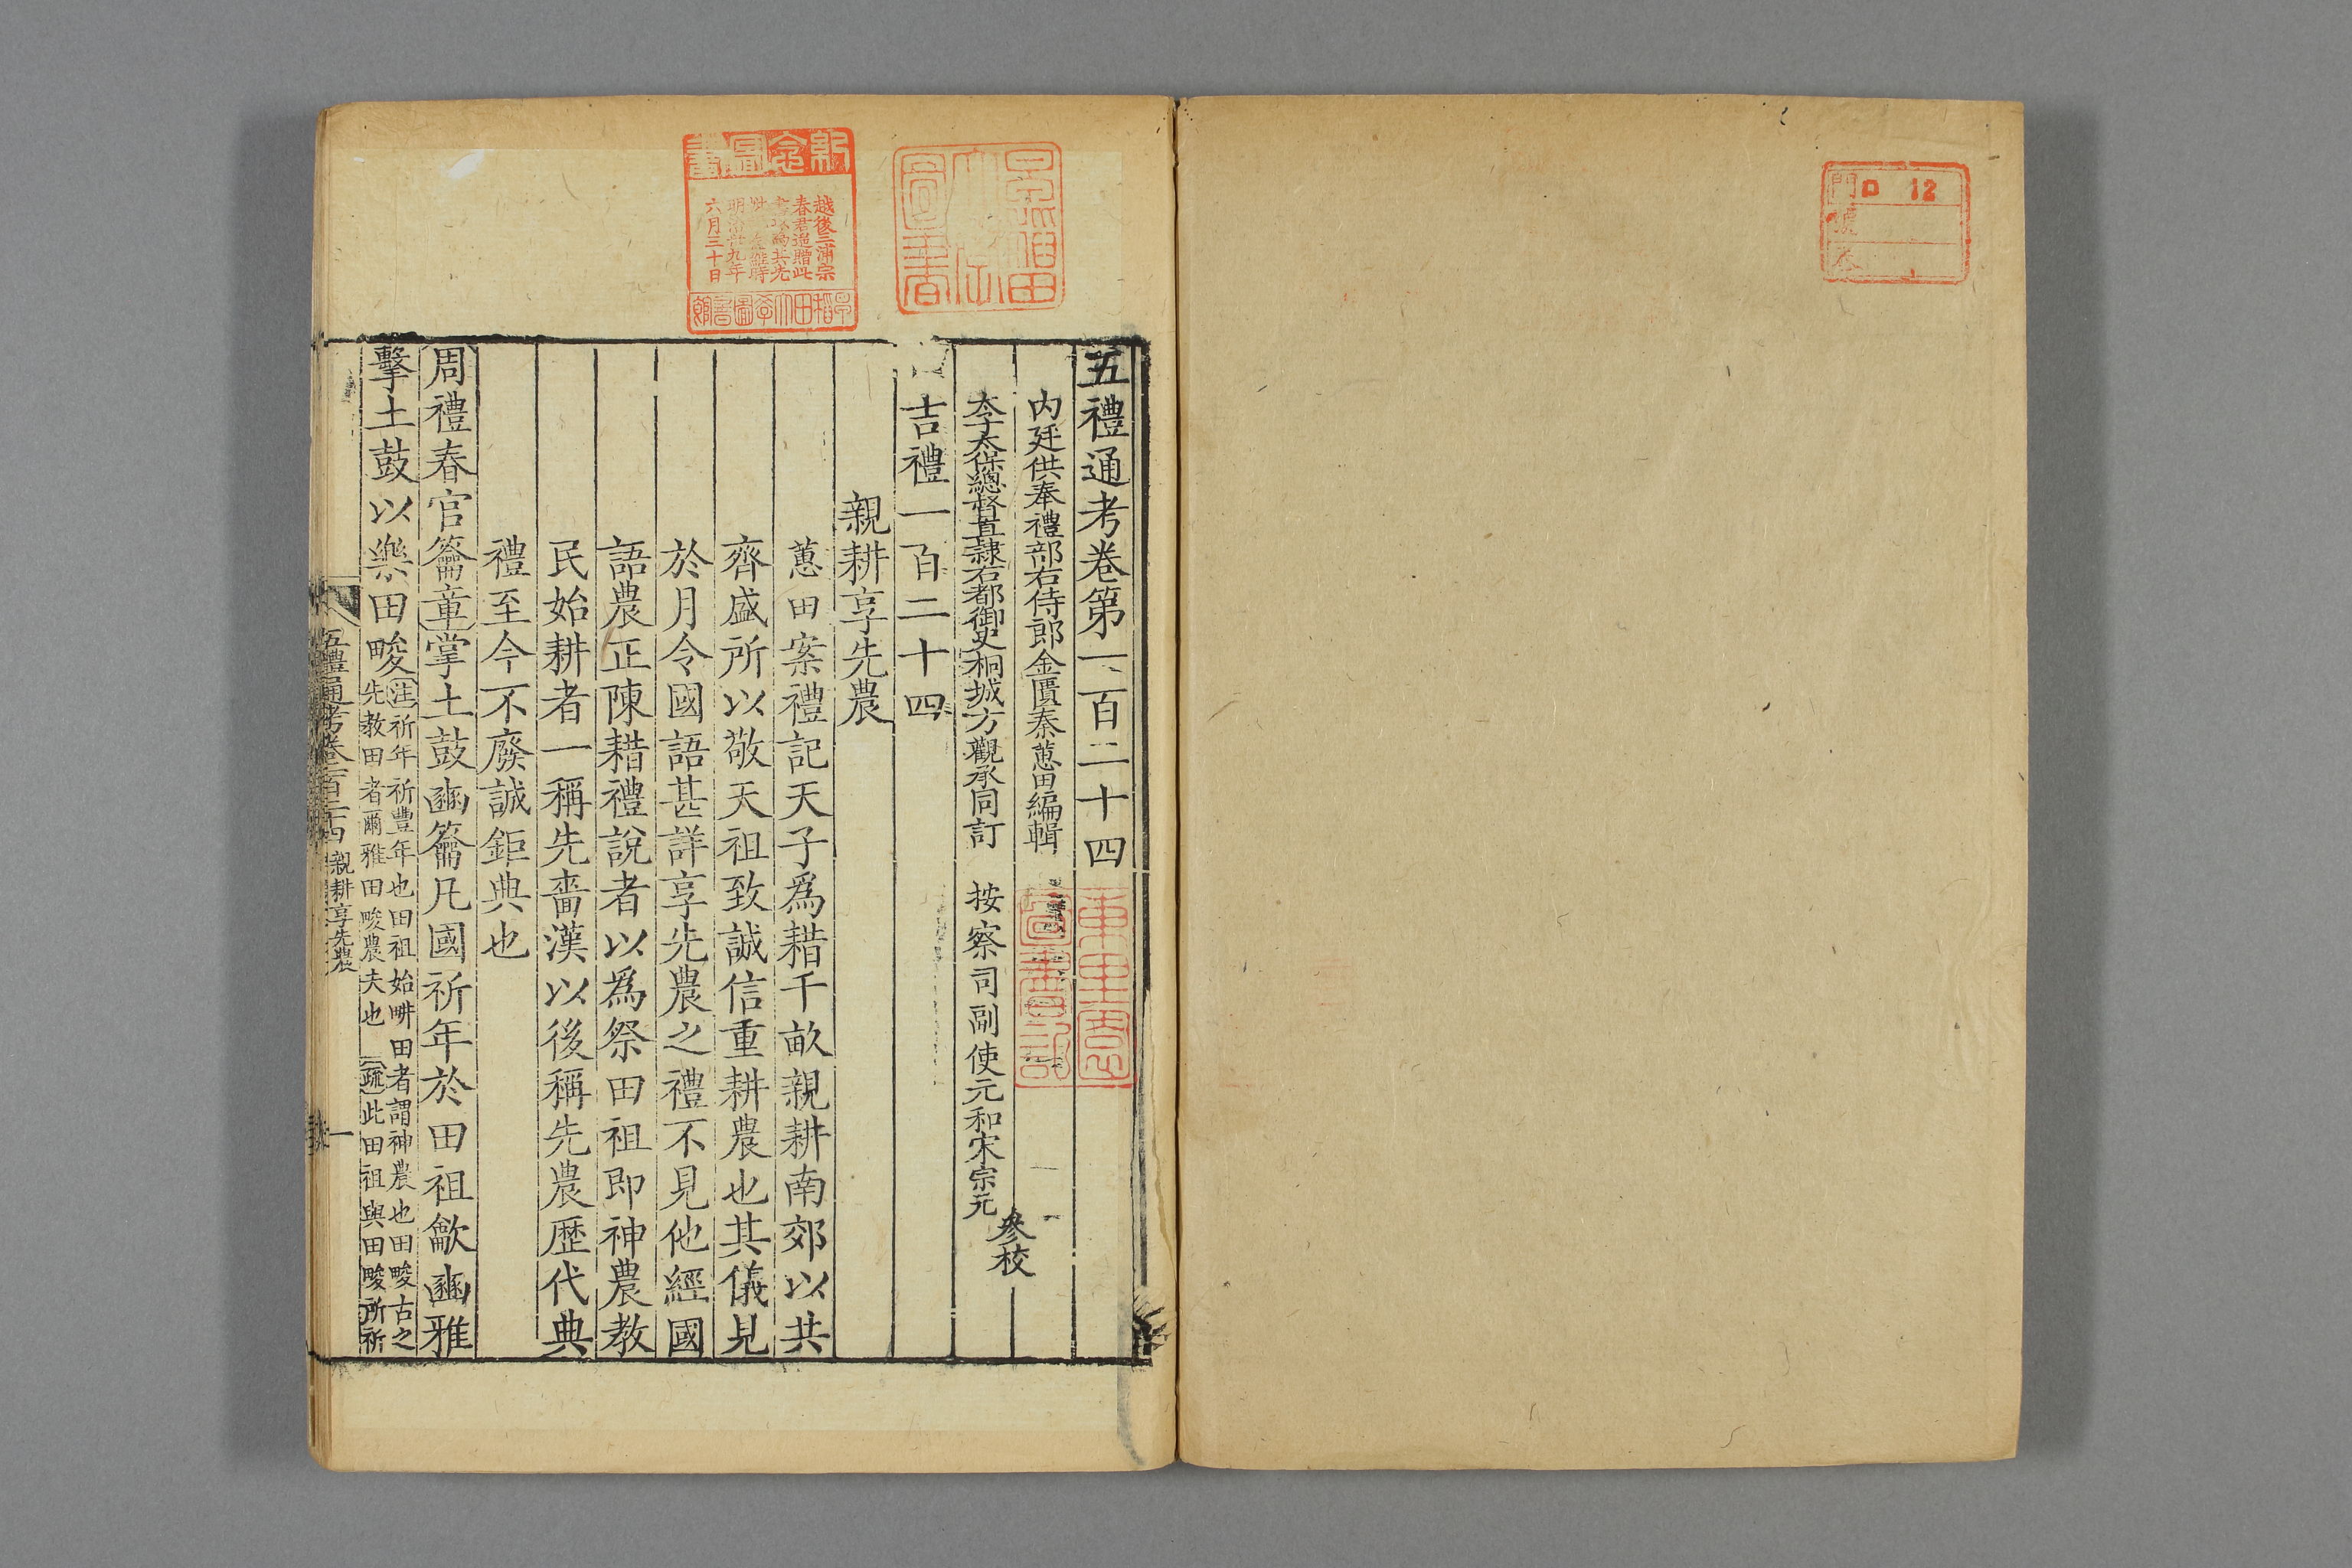 門 ロ 12
號
卷
五禮通考卷第一百二十四
内廷供奉禮部右侍郎金匱秦蕙田編輯
太子太保總督直隸右都御史桐城方觀承同訂 按察司副使元和宋宗元
參校
吉禮一百二十四
親耕享先農
蕙田案禮記天子爲耤千畝親耕南郊以共
齊盛所以敬天祖致誠信重耕農也其儀見
於月令國語甚詳享先農之禮不見他經國
語農正陳耤禮說者以爲祭田祖即神農教
民始耕者一稱先嗇漢以後稱先農歷代典
禮至今不廢誠鉅典也
周禮春官籥章掌土鼓豳籥凡國祈年於田祖龡豳雅
擊土鼓以樂田畯
注祈年祈豐年也田祖始畊田者謂神農也田畯古之
先教田者爾雅田畯農夫也 疏此田祖與田畯所祈
五禮通考卷一百二十四 親耕享先農
一
早稻田
圖書
紀念圖書
越後三浦宗
春君追贈此
其先
時
明治廿九年
六月三十日
早稻田大學圖書館
圖書記